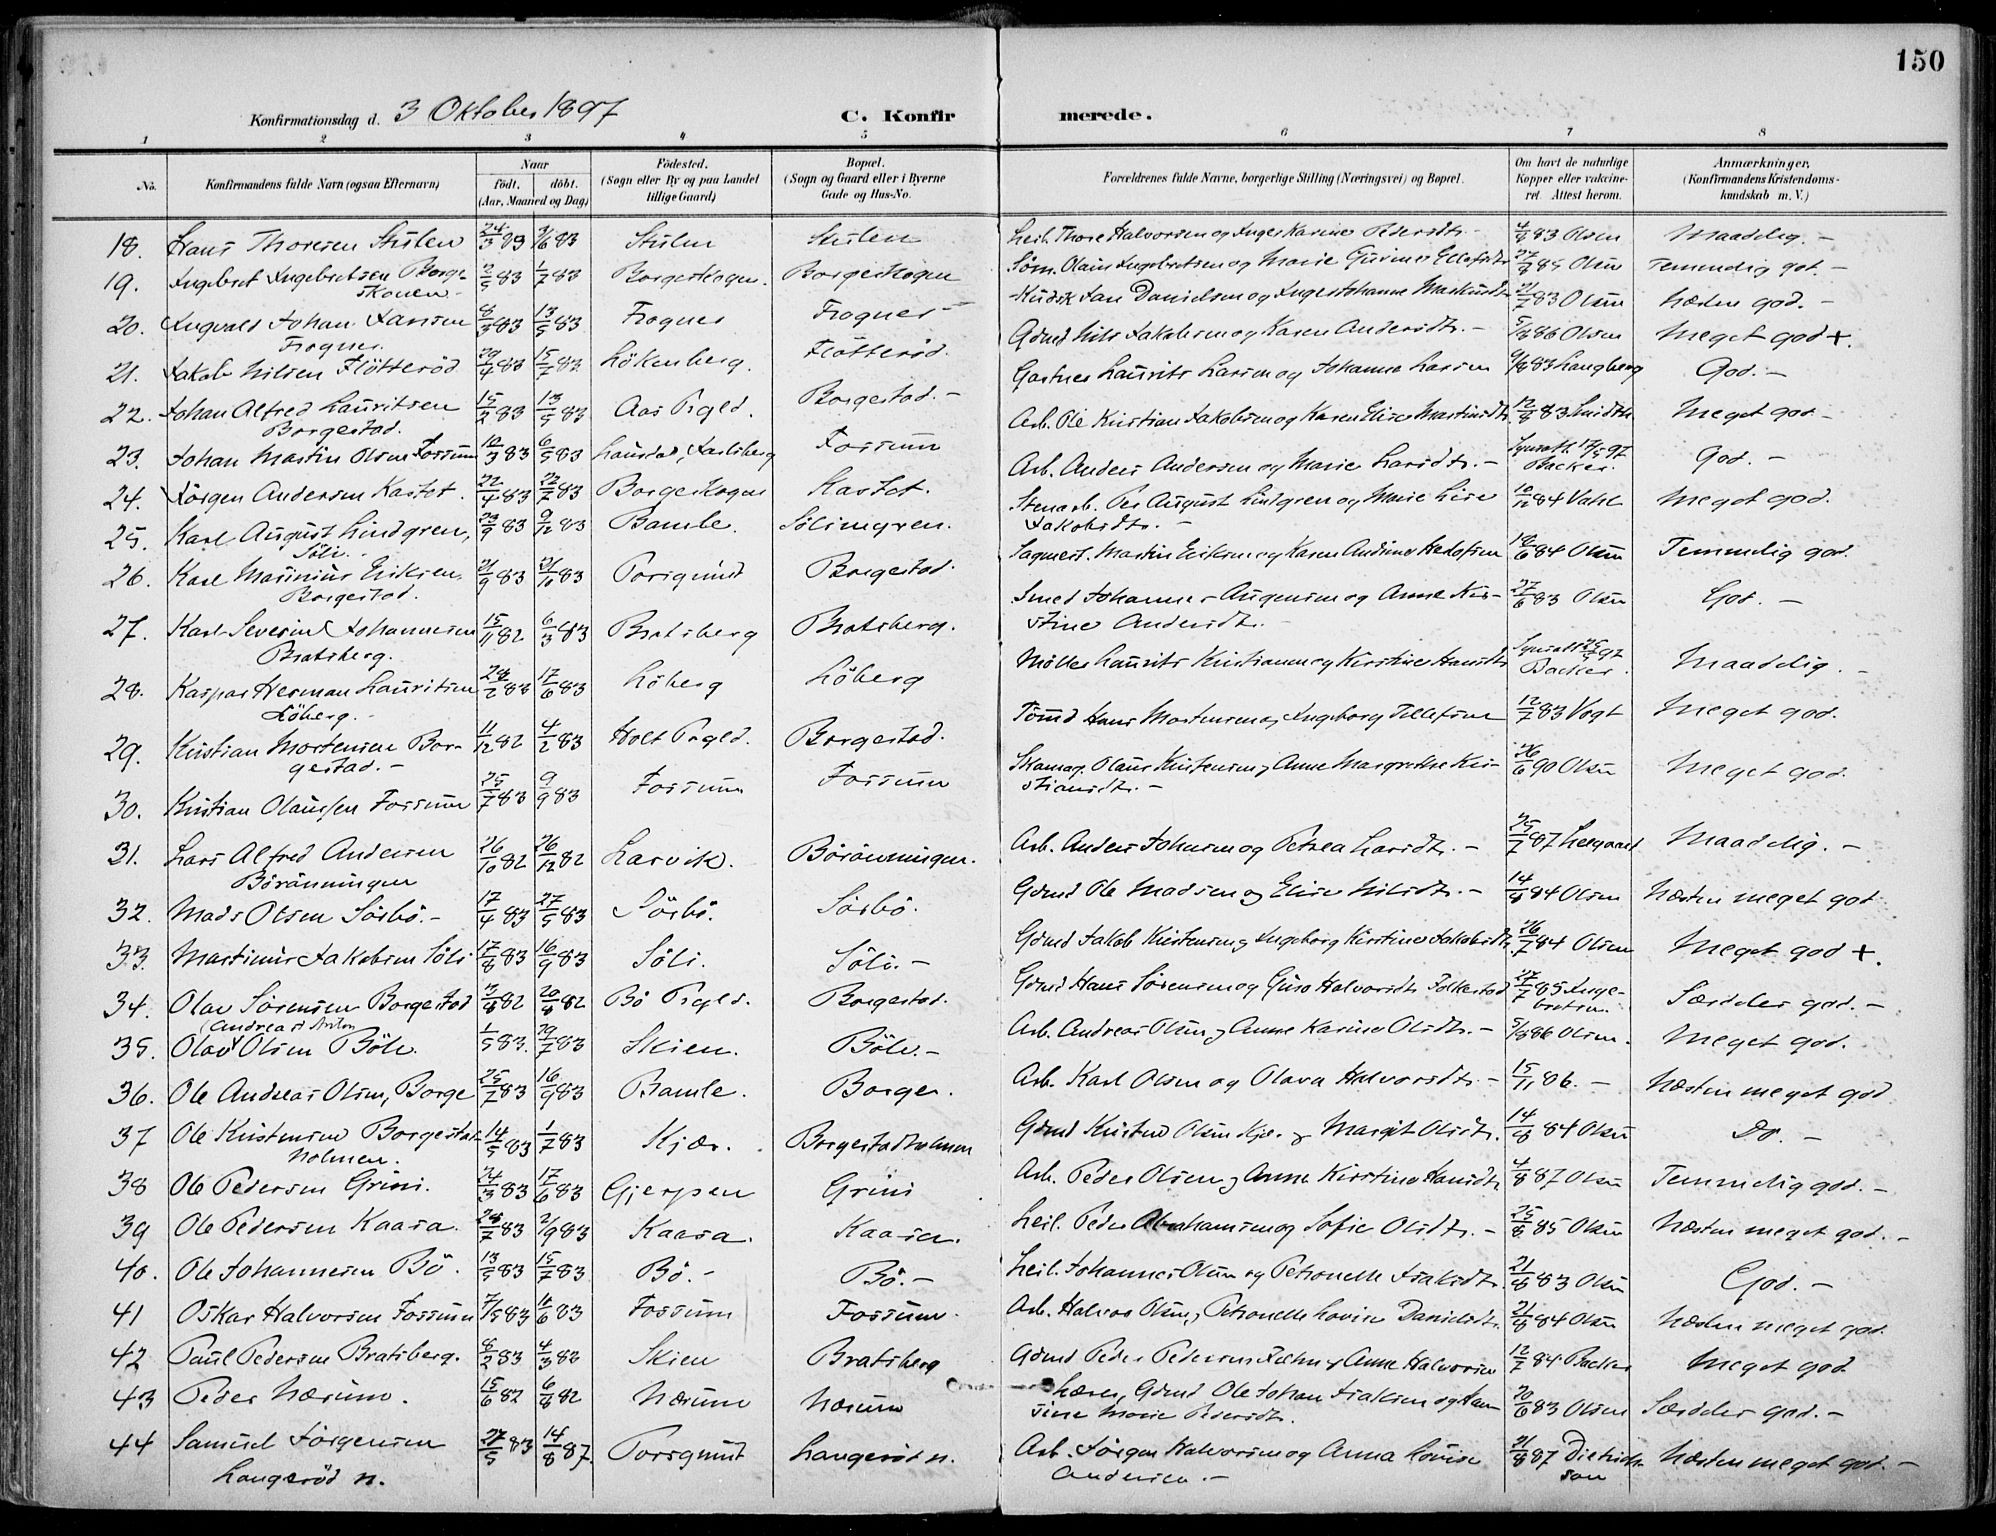 150
Konfirmationsdag d. 3 Oktober 1897
C. Konfirmerede.
1 2 3 4 5 6 7 8
No. Konfirmandens fulde Navn (ogsaa Efternavn) Naar født, døbt. (Aar, Maaned og Dag) Fødested. (Sogn eller By og paa Landet tillige Gaard) Bopæl. (Sogn og Gaard eller i Byerne Gade og Hus-No. Forældrenes fulde Navne, borgerlige Stilling (Næringsvei) og Bopæl. Om havt de naturlige Kopper eller vaccineret. Attest herom. Anmærkninger, (Konfirmandens Kristendomskundskab m. V.)
18. Hans Thoresen Stulen 24/3 83 3/6 83 Stulen Stulen Leil. Thore Halvorsen og Inger Karine 4/8 83 Olsen Maadelig. -
19. Ingebret Ingebretsen Borge- 2/5 83 1/7 83 Borgeskogen. Borgeskogen Olaus Ingebretsen og Marie 85 Olsen Temmelig god. -
skouen -
20. Ingvald Johan Jansen 8/3 83 13/5 83 Frogner Frogner - Kudsk Jan Danielsen og Inger Johanne 21/7 83 Olsen Næsten god. -
Frogner.
21. Jakob Nilsen Flötteröd 29/4 83 15/7 83 Lökenberg. Flötteröd. Gdmd Nils Jakobsen og Karen Andersdtr. - 86 Olsen Meget god +.
22. Johan Alfred Lauritsen 15/2 83 13/5 83 Aas Borgestad. - Gartner Laurits Larsen og Johanne Larsen 83 Langberg God. -
Borgestad.
23. Johan Martin Olsen Fossum 10/3 83 6/5 83 Jarlsberg Fossum Arb. Ole Kristian Jakobsen og Karen Elise 12/9 83 Meget god -
24. Jörgen Andersen Kastet. 22/4 83 22/7 83 Borgeskogen Kastet. Arb. Anders Andersen og Marie Larsdtr. - 97 Backer. God. -
25. Karl August Lindgren, 29/9 83 9/12 83 Bamle. Sölimyren. Stenarb. Per August Lindgren og Marie Lise 84 Meget god.
Söli. Jakobsdtr. -
26. Karl Marinius Eriksen, 21/9 83 21/11 83 Porsgrund Borgestad. Sagmest. Martin Eriksen og Karen Andine 84 Olsen Temmelig god.
Borgestad.
27. Karl Severin Johannesen 15/11 82 6/3 83 Bratsberg Bratsberg. Smed Johannes Augensen og Anne Kir- 27/6 83 Olsen God. -
Bratsberg. stine Andersdtr. -
28. Kaspar Herman Lauritsen 83 17/6 83 Löberg Löberg Möller Laurits Kristiansen og Kirstine Hansdtr 97 Backer. Maadelig. -
Löberg. -
29. Kristian Mortensen Bor- 11/12 82 4/2 83 Holt Borgestad. Tömmd Hans Mortensen og Ingeborg 12/7 83 Vogt Meget god.
gestad. -
30. Kristian Olaussen Fossum 25/7 83 9/9 83 Fossum Fossum Skomag. Olaus Kristensen og Anne Margrethe Kri- 26/6 90 Olsen Meget god.
stiansdtr. -
31. Lars Alfred Andersen 26/10 82 26/12 82 Larvik. Böränningen. Arb. Anders Johnsen og Petrea Larsdtr. - 25/7 87 Maadelig. -
Böränningen
32. Mads Olsen Sörbö. - 17/4 83 27/5 83 Sörbö. Sörbö. Gdmd Ole Madsen og Elise Nilsdtr. - 14/8 84 Olsen Næsten meget god
33. Martinus Jakobsen Söli 17/8 83 16/9 83 Söli. Söli. - Gdmd Jakob Kristensen og Ingeborg Kirstine Jakobsdtr. 26/7 84 Olsen Meget god +.
34. Olav Sörensen Borgestad 82 20/8 82 Bö Borgestad. Gdmd Hans Sörensen og Guro Halvorsdtr Folkestad 27/7 85 Inge- Særdeles god. -
bretsen.
(Andreas Anton
35. Olav Olsen Böle. 1/5 83. 29/7 83 Skien. Böle. - Arb. Andreas Olsen og Anne Karine Olsdtr. - 5/8 86 Olsen. Meget god.
36. Ole Andreas Olsen, Borge 25/7 83 16/9 83 Bamle. Borge. Arb. Karl Olsen og Olava Halvorsdtr. - 15/11 86. - Næsten meget god
37 Ole Kristensen Borgestad- 14/5 83 1/7 83 Kjær. Borgestadholmen Gdmd Kristen Olsen Kjær og Margit Olsdtr. 14/8 84 Olsen Do. -
holmen.
38 Ole Pedersen Grini. 24/3 83 17/6 83 Gjerpen Grini Arb. Peder Olsen og Anne Kirstine Hansdtr 4/8 87 Olsen Temmelig god. -
39 Ole Pedersen Kaasa. 83 2/9 83 Kaasa. Kaasa. Leil. Peder Abrahamsen og Sofie Olsdtr. - 25/8 85 Olsen Næsten meget god. -
40. Ole Johannesen Bö. 13/5 83 15/7 83 Bö. - Bö. - Leil. Johannes Olsen og Petronelle Isaksdtr. 21/8 83 Olsen God. -
41 Oskar Halvorsen Fossum 7/5 83 83 Fossum Fossum. Arb. Halvor Olsen, Petronelle Lovise Danielsdtr. 21/8 84 Olsen Næsten meget god.
42 Paul Pedersen Bratsberg. 8/2 83 4/3 83 Skien Bratsberg Gdmd Peder Pedersen og Anne Halvorsen 12/7 84 Backer Meget god
43 Peder Nærum. 15/6 82 6/8 82 Nærum Nærum Lærer, Gdmd Ole Johan Isaksen og 20/6 83 Olsen Særdeles god. -
sine Marie Pedersdtr.
44 Samuel Jörgensen 27/5 83 14/8 87. Porsgrund Langeröd n. Arb. Jörgen Halvorsen og Anna Lovise 21/8 87 Dietrich- Næsten meget god. -
Langeröd n. Andersen. - son